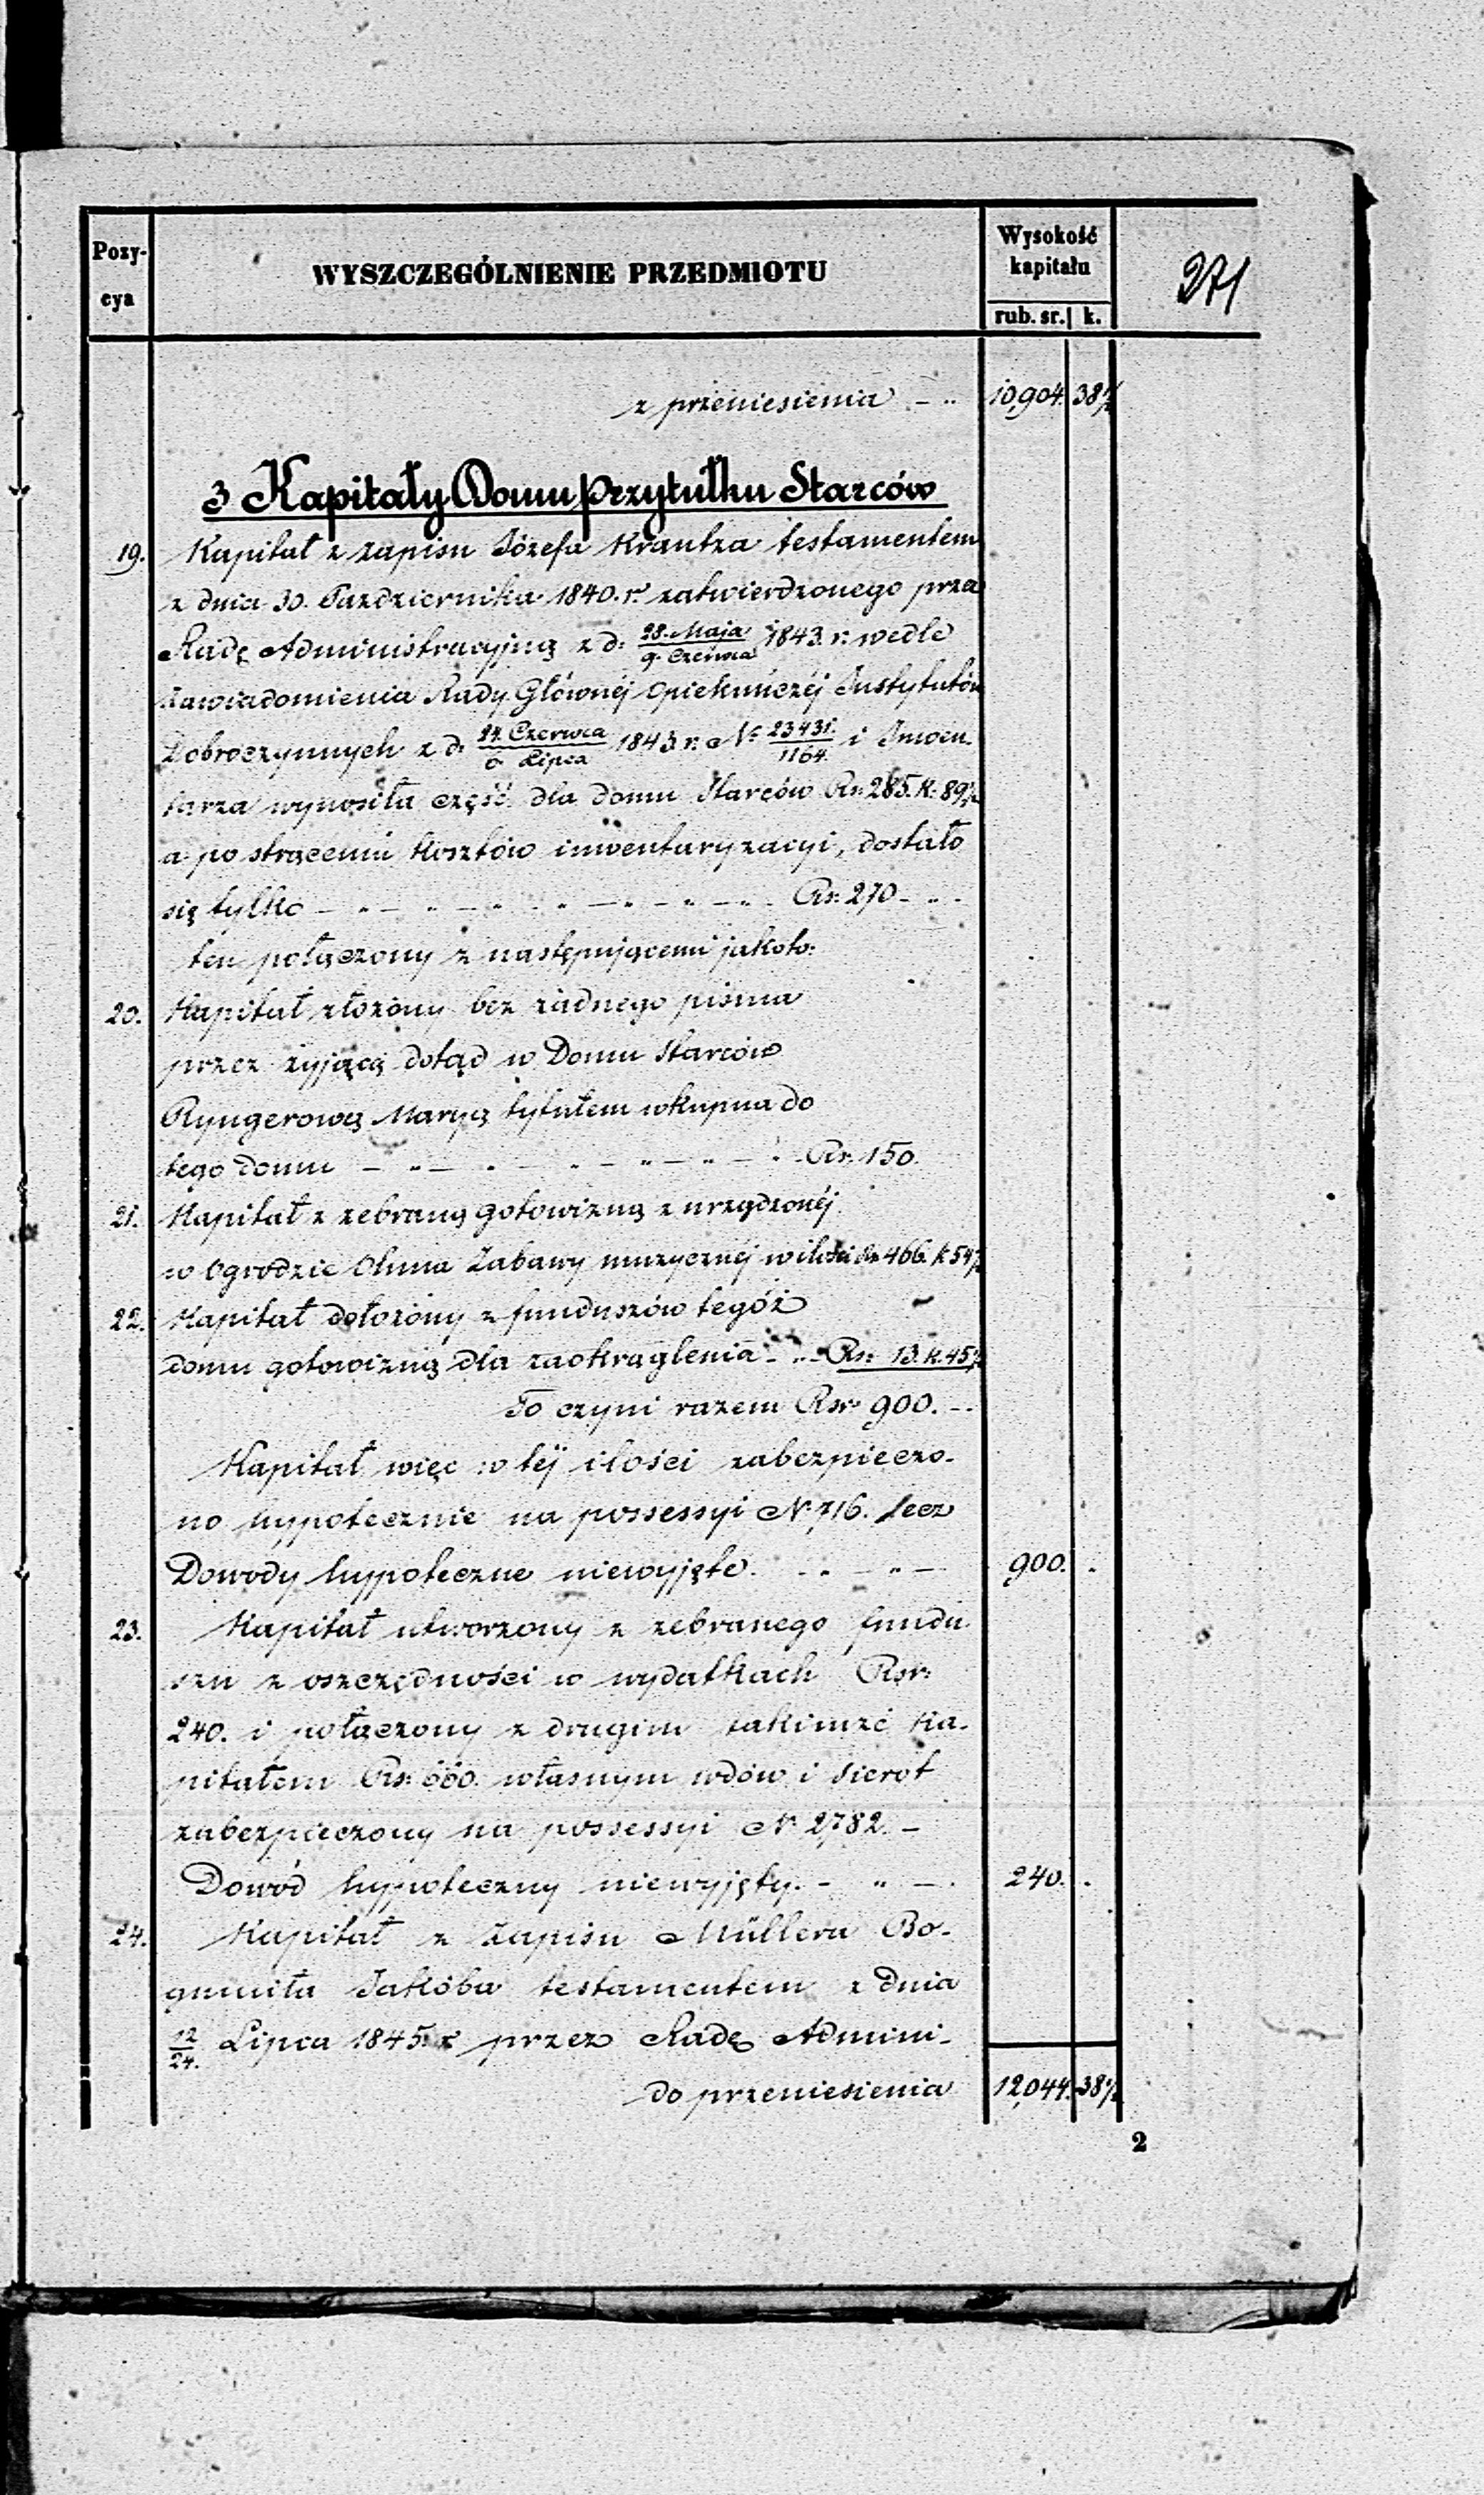 Pozy-
cya
WYSZCZEGÓLNIENIE PRZEDMIOTU
Wysokość
kapitału
rub. sr. k.
271
z przeniesienia 10,904. 38½
3 Kapitały Domu Przytułku Starców
19. Kapitał z zapisu Józefa Krantza testamentem
z dnia 30. Października 1840. r. zatwierdzonego przez
Radę Administracyjną z d. 28. Maja / 9. Czerwca 1843. r. wedle
zawiadomienia Rady Głównéj Opiekuńczéj Instytutów
Dobroczynnych z d. 24. Czerwca / 6 Lipca 1843 r. N° 23431. / 1164. i Inwen.
tarza wynosiła część dla domu Starców Rs. 285. K. 89½
a po strąceniu kosztów inwentaryzacyi, dostało
się tylko Rs. 270
ten połączony z następującemi jakoto:
20. Kapitał złożony bez żadnego pisma
przez żyjącą dotąd w Domu Starców
Ryngerową Maryą tytułem wkupna do
tego domu Rs. 150.
21. Kapitał z zebraną gotowizną z urządzonéj
w Ogrodzie Ohma Zabawy muzycznéj w ilości Rs. 466. k 54½
22. Kapitał dołożony z funduszów tegóż
domu gotowizną dla zaokrąglenia Rs. 13. k. 45½
To czyni razem Rsr. 900.
Kapitał więc w téj ilości zabezpieczo-
no hypotecznie na possessyi N. 716. lecz
Dowody hypoteczne niewyjęte. 900.
23. Kapitał utworzony z zebranego fundu
szu z oszczędności w wydatkach Rsr.
240. i połączony z drugim takimże ka-
pitałem Rs. 660. własnym wdów i sierot
zabezpieczony na possessyi N. 2782. –
Dowód hypoteczny niewyjęty. 240.
24. Kapitał z zapisu Müllera Bo-
gumiła Jakóba testamentem z dnia
12/24. Lipca 1845. r przez Radę Admini-
do przeniesienia 12,044. 38½
2